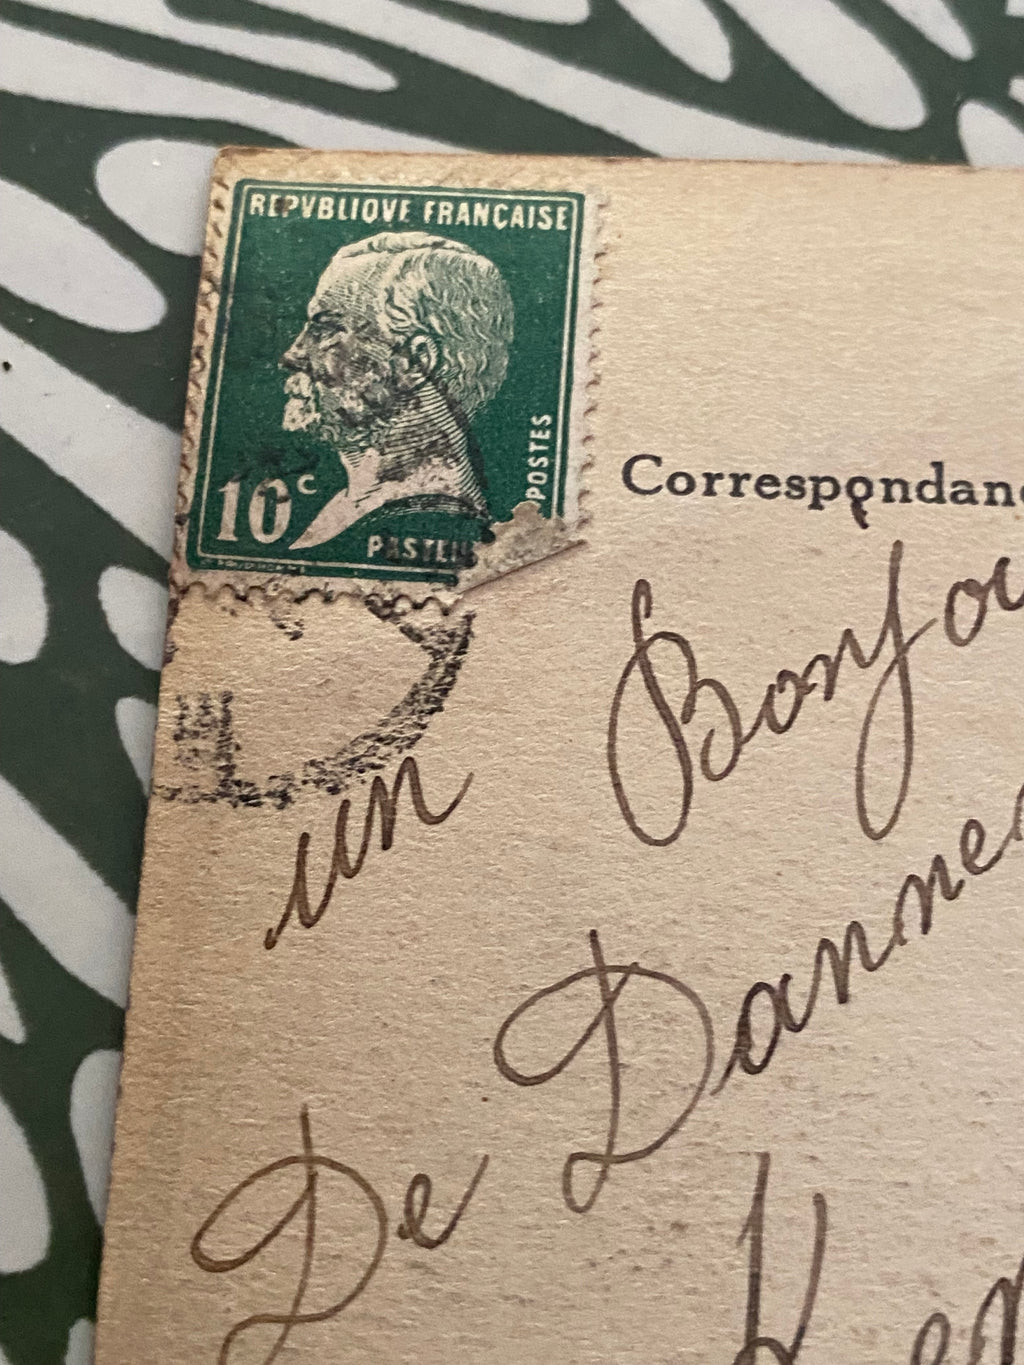 REPVBLIQVE FRANÇAISE
POSTES
10c
PASTEUR
Correspondanc
un Bonjou
De Dannes
De